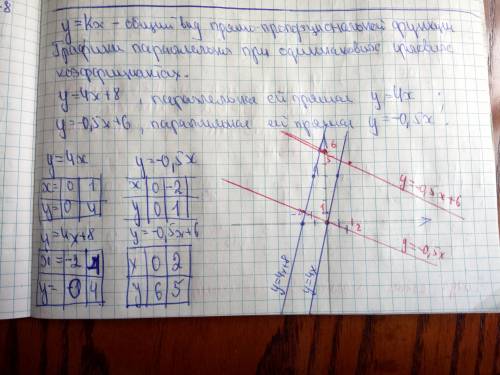 y=Kx - общий вид прямо пропорциональной функции
Графики параллельны при одинаковых угловых
коэффициентах.
y=4x+8, параллельна ей прямая y=4x;
y=-0,5x+6, параллельная ей прямая y=-0,5x.
y=4x
x= 0 1
y= 0 4
y=4x+8
x= -2 -1
y= 0 4
y=-0,5x
x 0 -2
y 0 1
y=-0,5x+6
x 0 2
y 6 5
6
5
y=-0,5x+6
-2
1
2
y=-0,5x
y=4x+8
y=4x